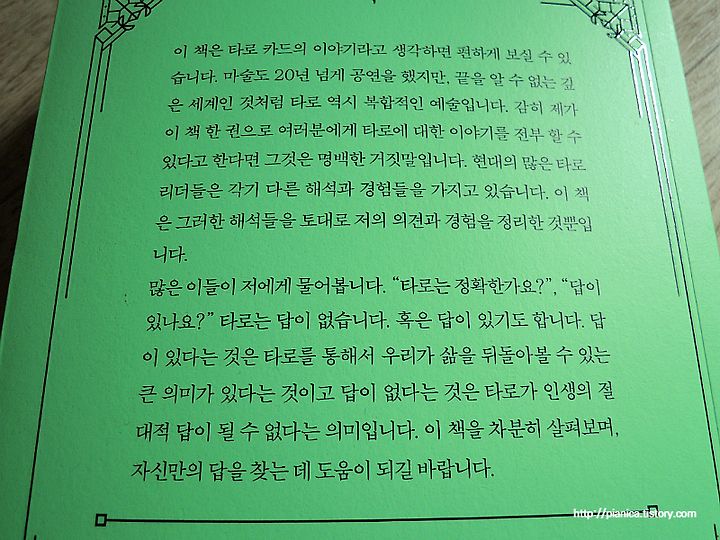 이 책은 타로 카드의 이야기라고 생각하면 편하게 보실 수 있
습니다. 마술도 20년 넘게 공연을 했지만, 끝을 알 수 없는 깊
은 세계인 것처럼 타로 역시 복합적인 예술입니다. 감히 제가
이 책 한 권으로 여러분에게 타로에 대한 이야기를 전부 할 수
있다고 한다면 그것은 명백한 거짓말입니다. 현대의 많은 타로
리더들은 각기 다른 해석과 경험들을 가지고 있습니다. 이 책
은 그러한 해석들을 토대로 저의 의견과 경험을 정리한 것뿐입
니다.
많은 이들이 저에게 물어봅니다. “타로는 정확한가요?”, “답이
있나요?” 타로는 답이 없습니다. 혹은 답이 있기도 합니다. 답
이 있다는 것은 타로를 통해서 우리가 삶을 뒤돌아볼 수 있는
큰 의미가 있다는 것이고 답이 없다는 것은 타로가 인생의 절
대적 답이 될 수 없다는 의미입니다. 이 책을 차분히 살펴보며,
자신만의 답을 찾는 데 도움이 되길 바랍니다.
http://pianica.tistory.com